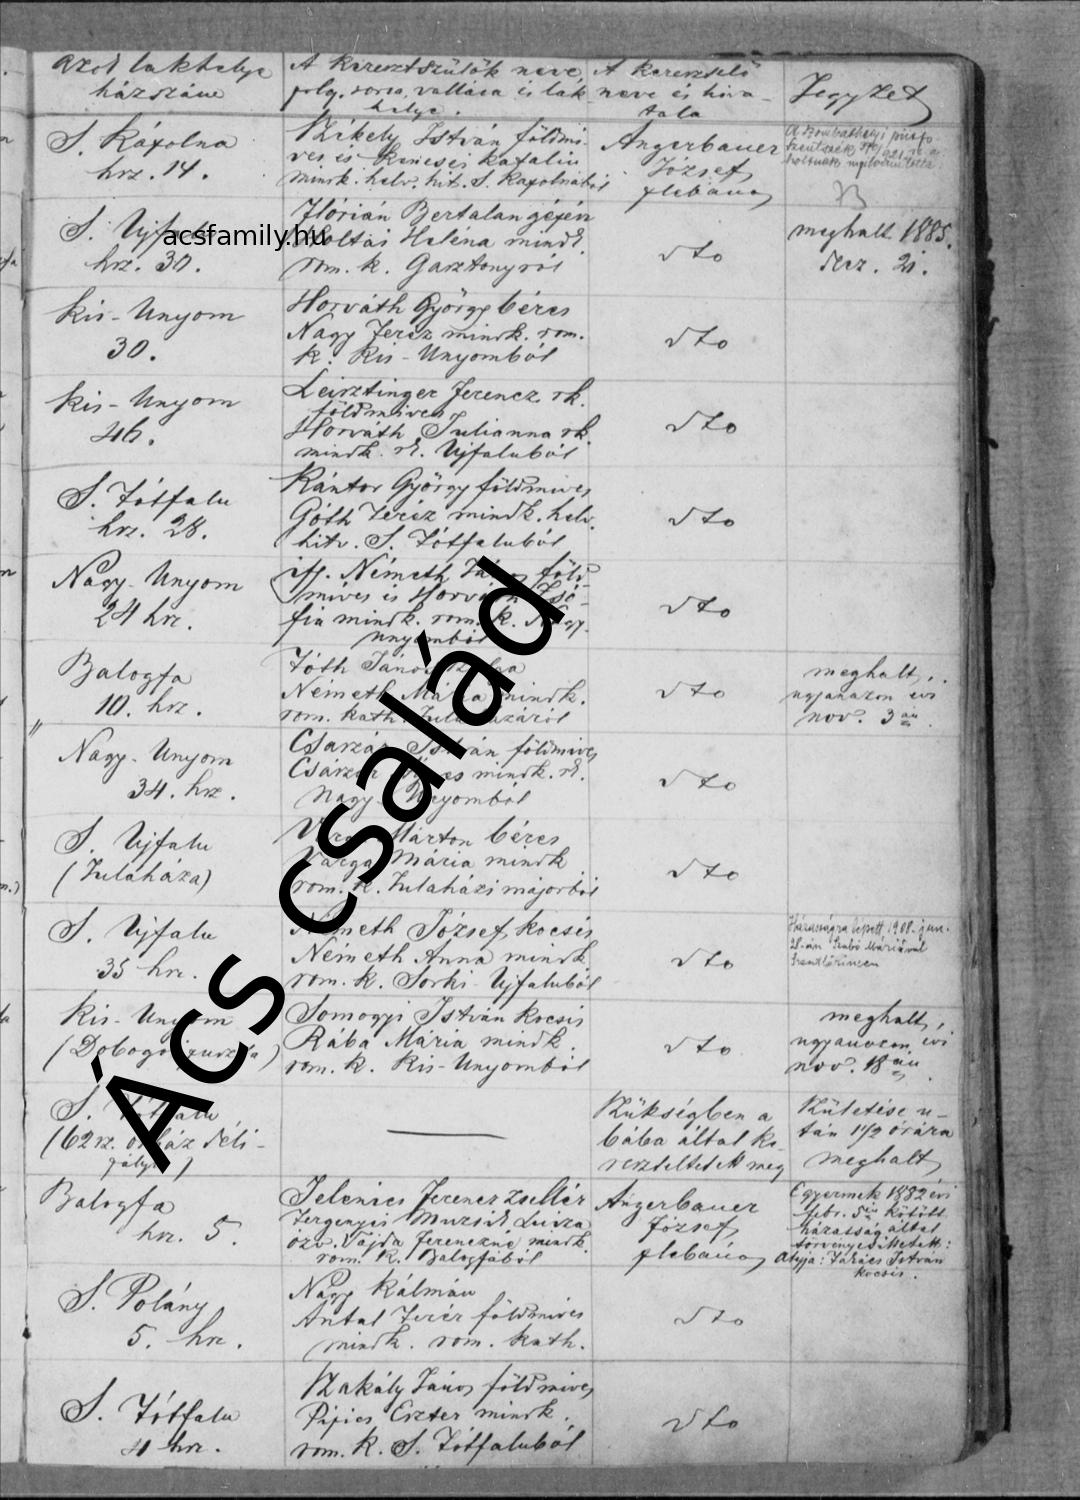 azok lakhelye
házszáma
A keresztszülők neve,
polg. sorsa, vallása és lak-
helye.
A keresztelő
neve és hiva-
tala
Jegyzet
S. Kápolna
hsz. 14.
Székely István földmi-
ves és Kincsei Katalin
mindk. helv. hit. S. Kápolnából
Angerbauer
József
plebános
A szombathelyi püspö.
S. Ujfalu
hsz. 30.
Flórián Bertalan gépész
Holtai Heléna mindk.
rom. k. Gasztonyról
dto
meghalt 1885.
decz. 21.
Kis-Unyom
30.
Horváth György béres
Nagy Teréz mindk. rom.
k. Kis-Unyomból
dto
Kis-Unyom
46.
Leisztinger Ferencz rk.
földmives
Horváth Julianna rk.
mindk. S. Ujfaluból
dto
S. Tótfalu
hsz. 28.
Kántor György földmives
Góth Teréz mindk. helv.
hitv. S. Tótfaluból
dto
Nagy-Unyom
24 hsz.
ifj. Németh János föld-
mives és Horváth Zsó-
fia mindk. rom. k. Nagy-
unyomból
dto
Balogfa
10. hsz.
Tóth János
Németh Mária mindk.
rom. kath.
dto
meghalt,
ugyanazon évi
nov. 3án
Nagy-Unyom
34. hsz.
Császár István földmives
Császár mindk. rk.
Nagy-Unyomból
dto
S. Ujfalu
(Zuláháza)
Varga Márton béres
Varga Mária mindk
rom. k. Zulaházi majorból
dto
S. Ujfalu
35 hsz.
Németh József kocsis
Németh Anna mindk
rom. k. Sorki-Ujfaluból
dto
Házasságra lépett 1908. jan.
28-án Szabó Máriával
Szentlőrincen
Kis-Unyom
(Dobogói puszta)
Somogyi István kocsis
Rába Mária mindk.
rom. k. Kis-Unyomból
dto
meghalt,
ugyanazon évi
nov. 18án
S. Tótfalu
(62 sz. őrház déli-
pálya)
Szükségben a
bába által ke-
reszteltetett meg
Születése u-
tán 1 1/2 órára
meghalt
Balogfa
hsz. 5.
Jelenics Ferencz zsellér
Luiza
özv. Vajda Ferenczné mindk.
rom. k. Balogfából
Angerbauer
József,
plebános
Egyermek 1882 évi
febr. 5én kötött
házasság által
törvényesíttetett:
Atyja: Takács István
kocsis.
S. Polány
5. hsz.
Nagy Kálmán
Antal Teréz földmives
mindk. rom. kath.
dto
S. Tótfalu
4 hsz.
Szakály János földmives
Pipics Eszter mindk.
rom. k. S. Tótfaluból
dto
acsfamily.hu
Ács család